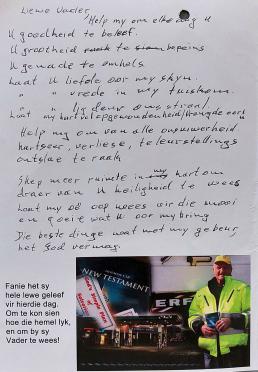 Liewe Vader,
Help my om elke dag u
U goedheid te beleef.
U grootheid te bepeins
U genade te omhels
Laat U liefde oor my skyn.
" " vrede in my tuiskom.
Laat my hart vol opgewondenheid/vreugde oor u
Help my om van alle onsuiwerheid
hartseer, verliese, teleurstellings
ontslae te raak
Skep meer ruimte in my hart om
draer van U heiligheid te wees
Laat my oë oop wees vir die mooi
en goeie wat U oor my bring
Die beste dinge wat met my gebeur,
het God vermag.
Fanie het sy
hele lewe geleef
vir hierdie dag.
Om te kon sien
hoe die hemel lyk,
en om by sy
Vader te wees!
NEW TESTAMENT